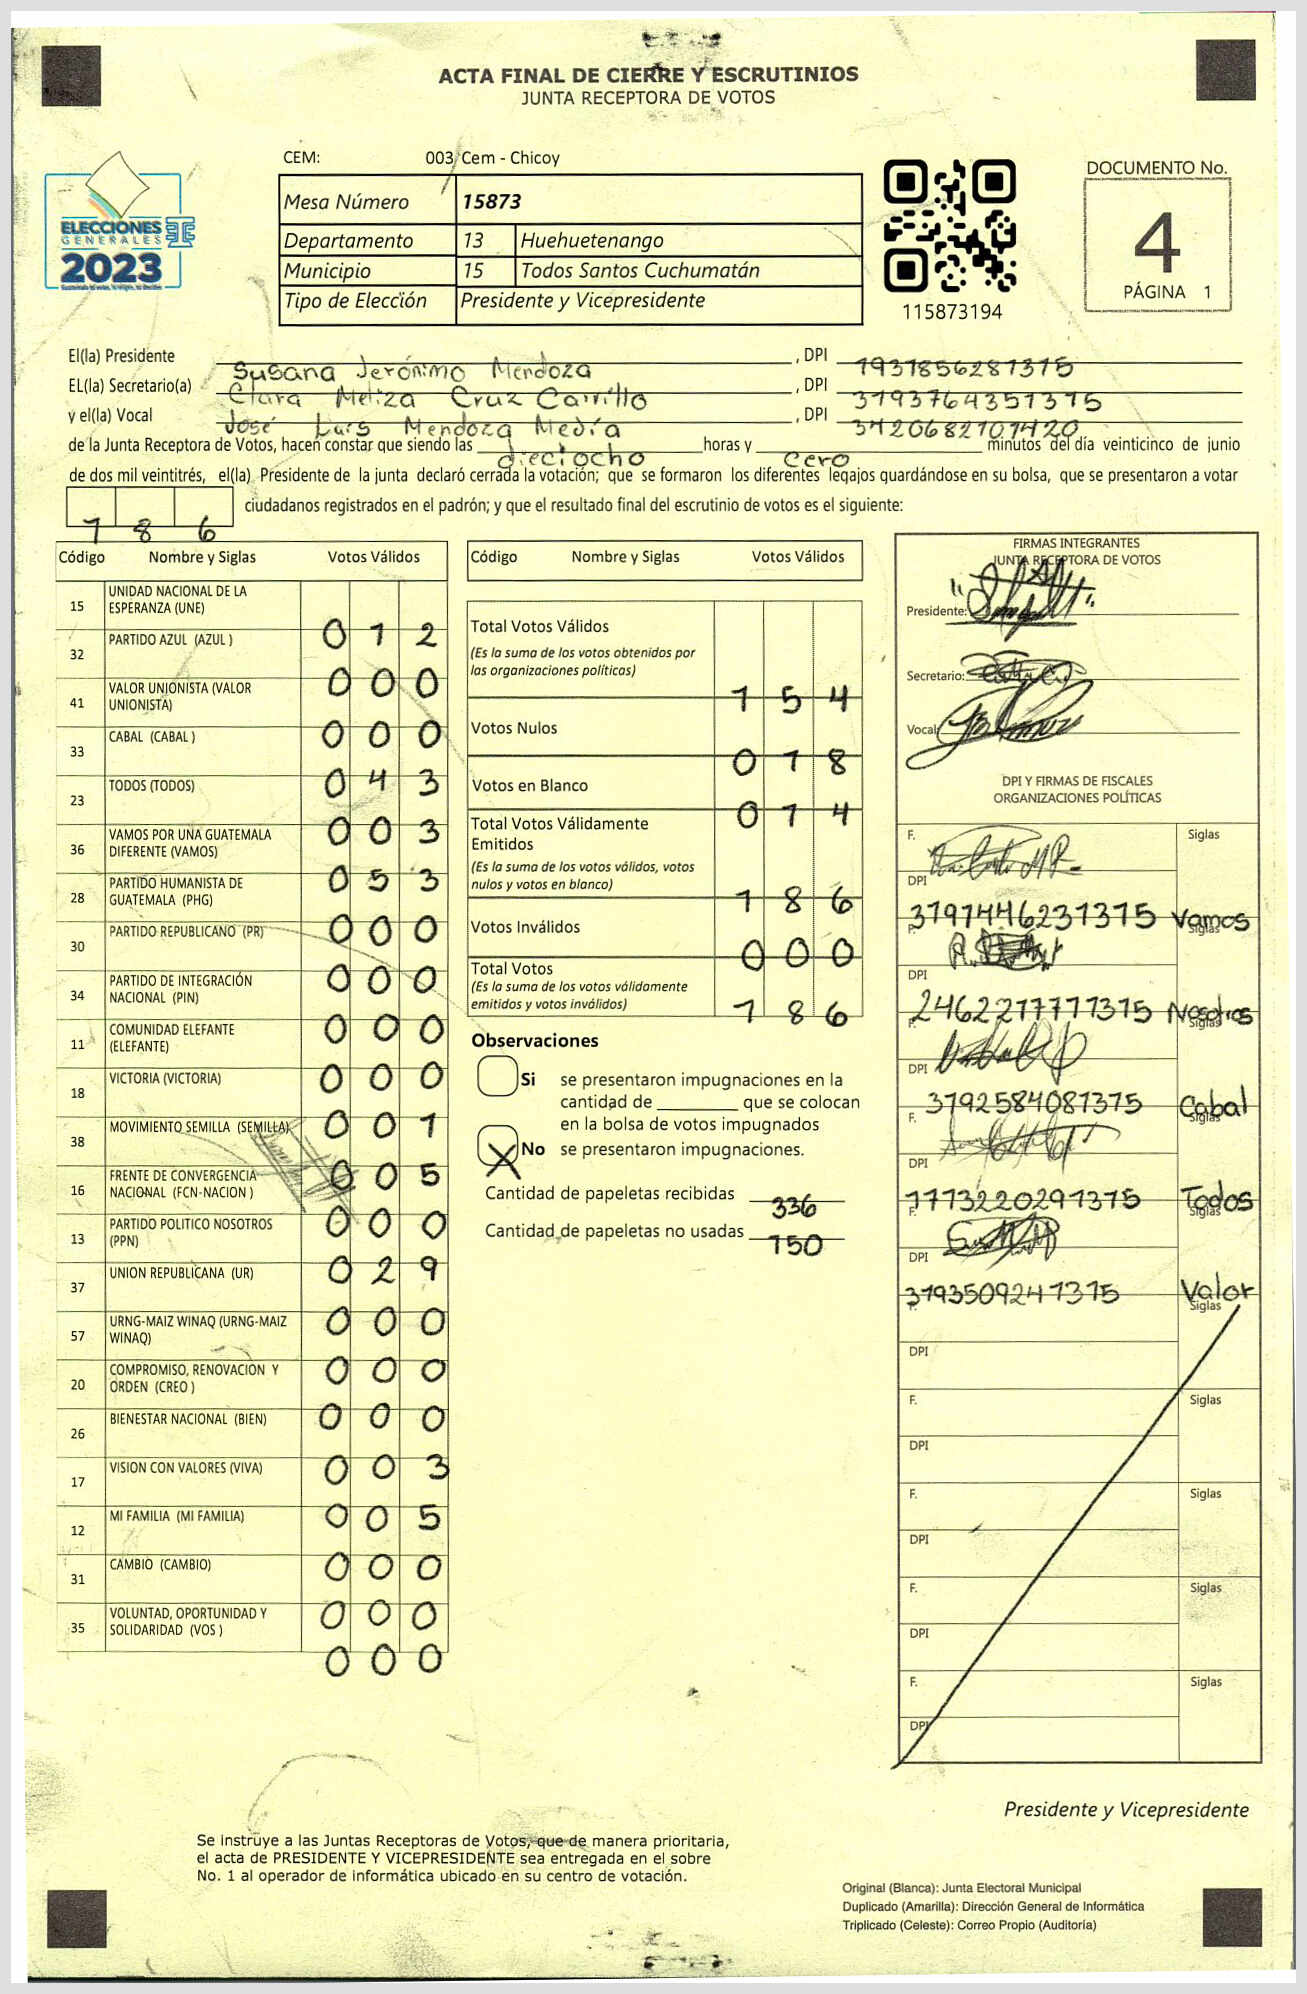 ACTA FINAL DE CIERRE Y ESCRUTINIOS
JUNTA RECEPTORA DE VOTOS
CEM: 003 Cem - Chicoy
ELECCIONES
GENERALES
2023
Mesa Número 15873
Departamento 13 Huehuetenango
Municipio 15 Todos Santos Cuchumatán
Tipo de Elección Presidente y Vicepresidente
115873194
DOCUMENTO No.
4
PÁGINA 1
El(la) Presidente Susana Jerónimo Mendoza , DPI 1931856281315
EL(la) Secretario(a) Clara Meliza Cruz Carrillo , DPI 3193764351315
y el(la) Vocal José Luis Mendoza Medía , DPI 3420682101420
de la Junta Receptora de Votos, hacen constar que siendo las dieciocho horas y cero minutos del día veinticinco de junio
de dos mil veintitrés, el(la) Presidente de la junta declaró cerrada la votación; que se formaron los diferentes legajos guardándose en su bolsa, que se presentaron a votar
186 ciudadanos registrados en el padrón; y que el resultado final del escrutinio de votos es el siguiente:
Código Nombre y Siglas Votos Válidos
15 UNIDAD NACIONAL DE LA ESPERANZA (UNE) 012
32 PARTIDO AZUL (AZUL ) 000
41 VALOR UNIONISTA (VALOR UNIONISTA) 000
33 CABAL (CABAL ) 043
23 TODOS (TODOS) 003
36 VAMOS POR UNA GUATEMALA DIFERENTE (VAMOS) 053
28 PARTIDO HUMANISTA DE GUATEMALA (PHG) 000
30 PARTIDO REPUBLICANO (PR) 000
34 PARTIDO DE INTEGRACIÓN NACIONAL (PIN) 000
11 COMUNIDAD ELEFANTE (ELEFANTE) 000
18 VICTORIA (VICTORIA) 001
38 MOVIMIENTO SEMILLA (SEMILLA) 005
16 FRENTE DE CONVERGENCIA NACIONAL (FCN-NACION ) 000
13 PARTIDO POLITICO NOSOTROS (PPN) 029
37 UNION REPUBLICANA (UR) 000
57 URNG-MAIZ WINAQ (URNG-MAIZ WINAQ) 000
20 COMPROMISO, RENOVACION Y ORDEN (CREO ) 000
26 BIENESTAR NACIONAL (BIEN) 003
17 VISION CON VALORES (VIVA) 005
12 MI FAMILIA (MI FAMILIA) 000
31 CAMBIO (CAMBIO) 000
35 VOLUNTAD, OPORTUNIDAD Y SOLIDARIDAD (VOS ) 000
Código Nombre y Siglas Votos Válidos
Total Votos Válidos
(Es la suma de los votos obtenidos por
las organizaciones políticas)
154
Votos Nulos 018
Votos en Blanco 014
Total Votos Válidamente
Emitidos
(Es la suma de los votos válidos, votos
nulos y votos en blanco)
186
Votos Inválidos 000
Total Votos
(Es la suma de los votos válidamente
emitidos y votos inválidos)
186
Observaciones
Si se presentaron impugnaciones en la
cantidad de ________ que se colocan
en la bolsa de votos impugnados
X No se presentaron impugnaciones.
Cantidad de papeletas recibidas 336
Cantidad de papeletas no usadas 150
FIRMAS INTEGRANTES
JUNTA RECEPTORA DE VOTOS
Presidente:
Secretario:
Vocal
DPI Y FIRMAS DE FISCALES
ORGANIZACIONES POLÍTICAS
F. Siglas
DPI 3191446231315 Vamos
F. Siglas
DPI 2462277771315 Nosotros
F. Siglas
DPI 3192584081315 Cabal
F. Siglas
DPI 1773220291315 Todos
F. Siglas
DPI 3193509241315 Valor
F. Siglas
DPI
F. Siglas
DPI
F. Siglas
DPI
F. Siglas
DPI
F. Siglas
DPI
Presidente y Vicepresidente
Se instruye a las Juntas Receptoras de Votos, que de manera prioritaria,
el acta de PRESIDENTE Y VICEPRESIDENTE sea entregada en el sobre
No. 1 al operador de informática ubicado en su centro de votación.
Original (Blanca): Junta Electoral Municipal
Duplicado (Amarilla): Dirección General de Informática
Triplicado (Celeste): Correo Propio (Auditoría)